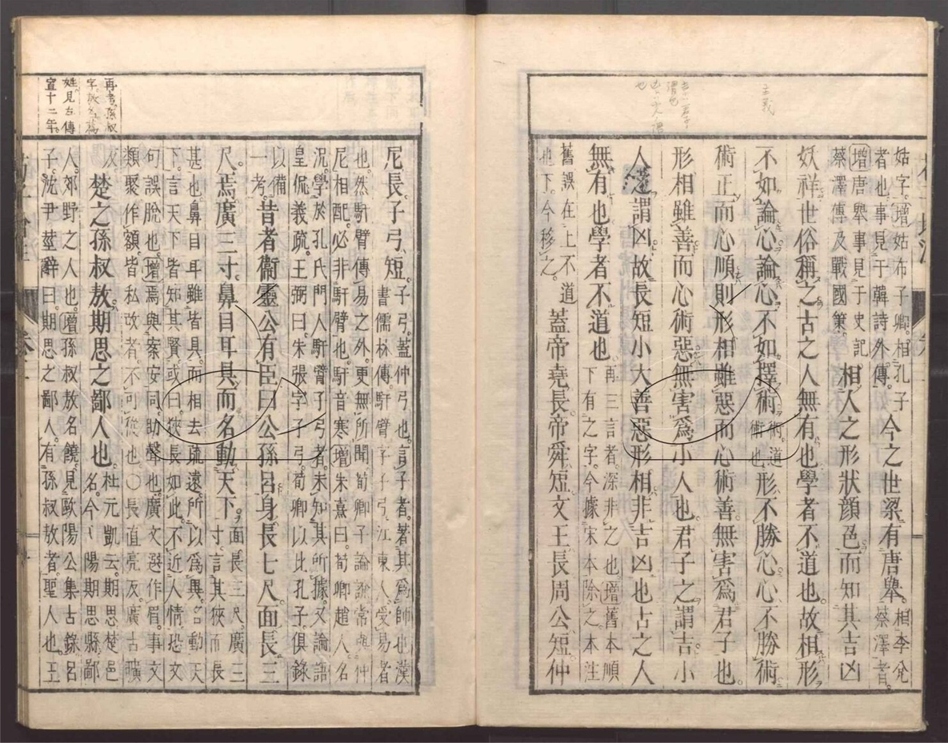 姑字。增姑布子卿。相孔子
者也。事見于韓詩外傳。
今之世梁有唐舉。
相李兌
蔡澤者。
增唐舉事見于史記
蔡澤傳及戰國策。
相人之形狀顏色而知其吉凶
妖祥世俗稱之古之人無有也學者不道也故相形
不如論心論心不如擇術
術道
術也
形不勝心心不勝術
術正而心順則形相雖惡而心術善無害爲君子也
形相雖善而心術惡無害爲小人也君子之謂吉小
人之謂凶故長短小大善惡形相非吉凶也古之人
無有也學者不道也
再三言者深非之也增舊本順
下有之字今據宋本除之本注
舊誤在上不道
也下今移之
蓋帝堯長帝舜短文王長周公短仲
尼長子弓短。
子弓蓋仲弓也言子者著其爲師也漢
書儒林傳馯臂字子弓江東人受易者
也然馯臂傳易之外更無所聞荀卿論說常與仲
尼相配必非馯臂也馯音寒增朱熹曰荀卿趙人名
況學於孔氏門人馯臂子弓者未知其所據又論語
皇侃義疏王弼曰朱張字子弓荀卿以比孔子俱錄
以備
一考
昔者衛靈公有臣曰公孫呂身長七尺面長三
尺焉廣三寸鼻目耳具而名動天下
面長三尺廣三
寸言其狹而長
甚也鼻目耳雖皆具而相去疏遠所以爲異名動天
下言天下皆知其賢或曰狹長如此不近人情恐文
句誤脫也增焉與案安同助聲也廣文選作眉事文
類聚作額皆私改者不可從也○長直亮反廣古曠
反
楚之孫叔敖期思之鄙人也
杜元凱云期思楚邑
名今弋陽期思縣鄙
人郊野之人也增孫叔敖名饒見歐陽公集古錄呂
子沈尹莖辭曰期思之鄙人有孫叔敖者聖人也王
再考孫叔
姓見左傳
宣十二年